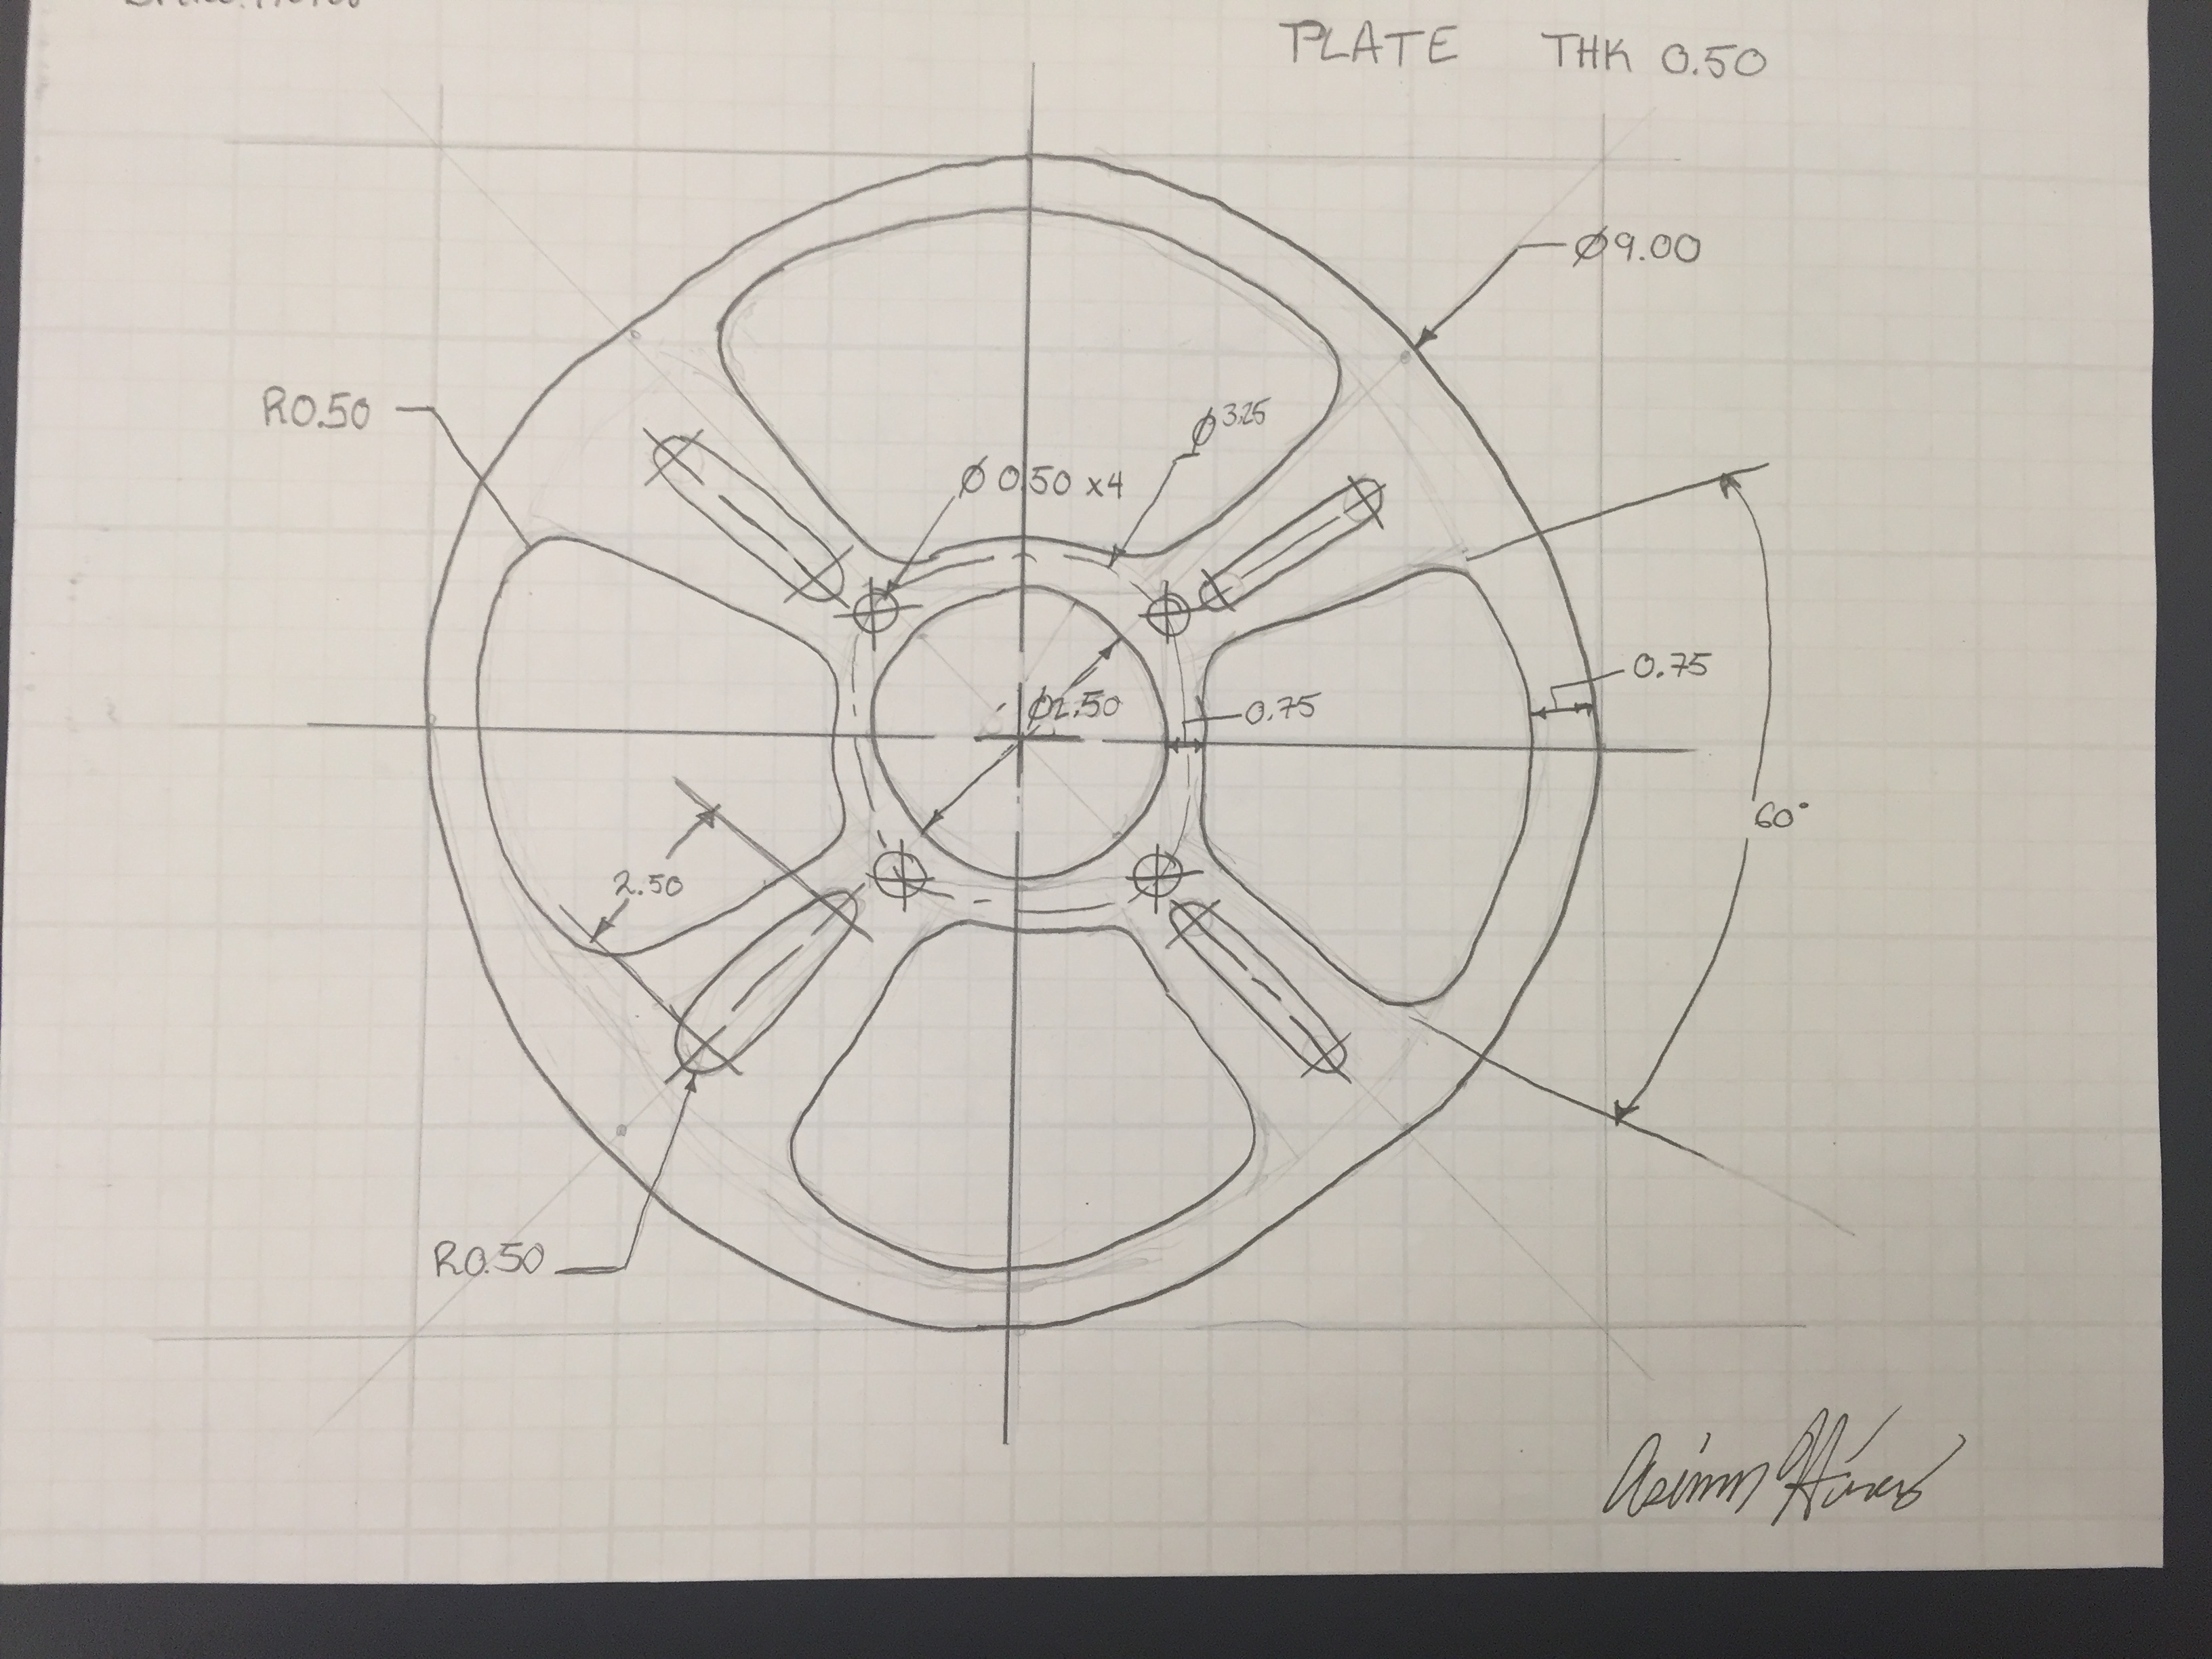 PLATE THK 0.50
Ø9.00
R0.50
Ø3.25
Ø 0.50 x4
0.75
Ø2.50
0.75
60°
2.50
R0.50